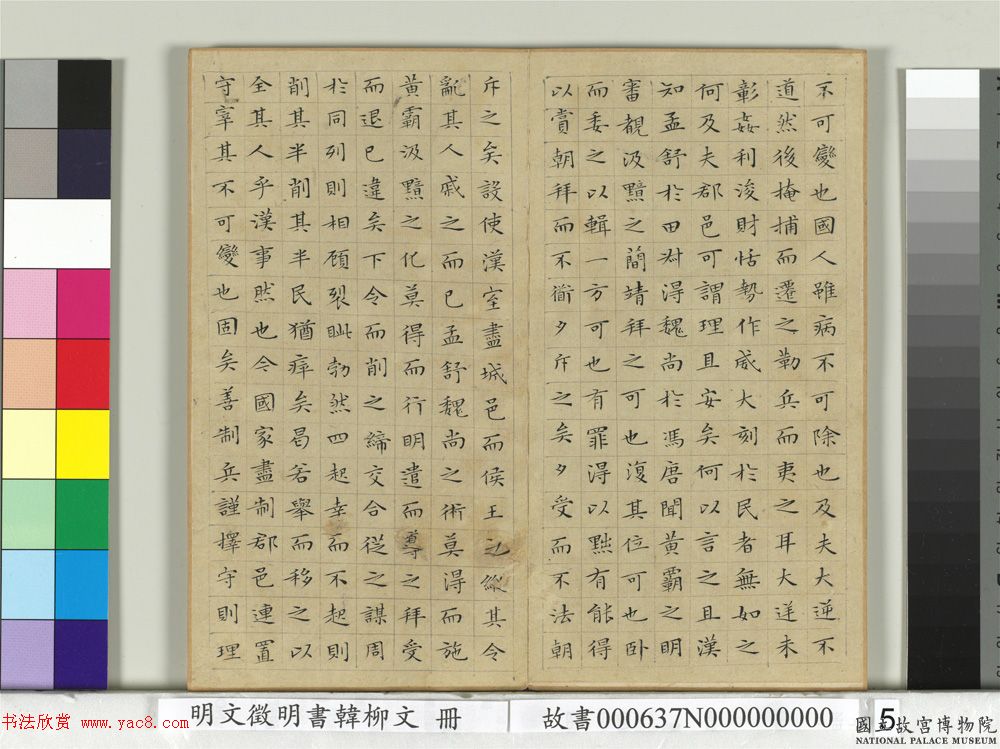 不可變也國人雖病不可除也及夫大逆不
道然後掩捕而遷之勒兵而夷之耳大逆未
彰姦利浚財怙勢作威大刻於民者無如之
何及夫郡邑可謂理且安矣何以言之且漢
知孟舒於田叔得魏尚於馮唐聞黃霸之明
審覩汲黯之簡靖拜之可也復其位可也臥
而委之以輯一方可也有罪得以黜有能得
以賞朝拜而不道夕斥之矣夕受而不法朝
斥之矣設使漢室盡城邑而侯王之縱其令
亂其人戚之而已孟舒魏尚之術莫得而施
黃霸汲黯之化莫得而行明遣而導之拜受
而退已違矣下令而削之締交合從之謀周
於同列則相顧裂眦勃然四起幸而不起則
削其半削其半民猶瘁矣曷若舉而移之以
全其人乎漢事然也今國家盡制郡邑連置
守宰其不可變也固矣善制兵謹擇守則理
明文徵明書韓柳文 冊
故書000637N000000000 5
书法欣赏 www.yac8.com
國立故宮博物院
NATIONAL PALACE MUSEUM